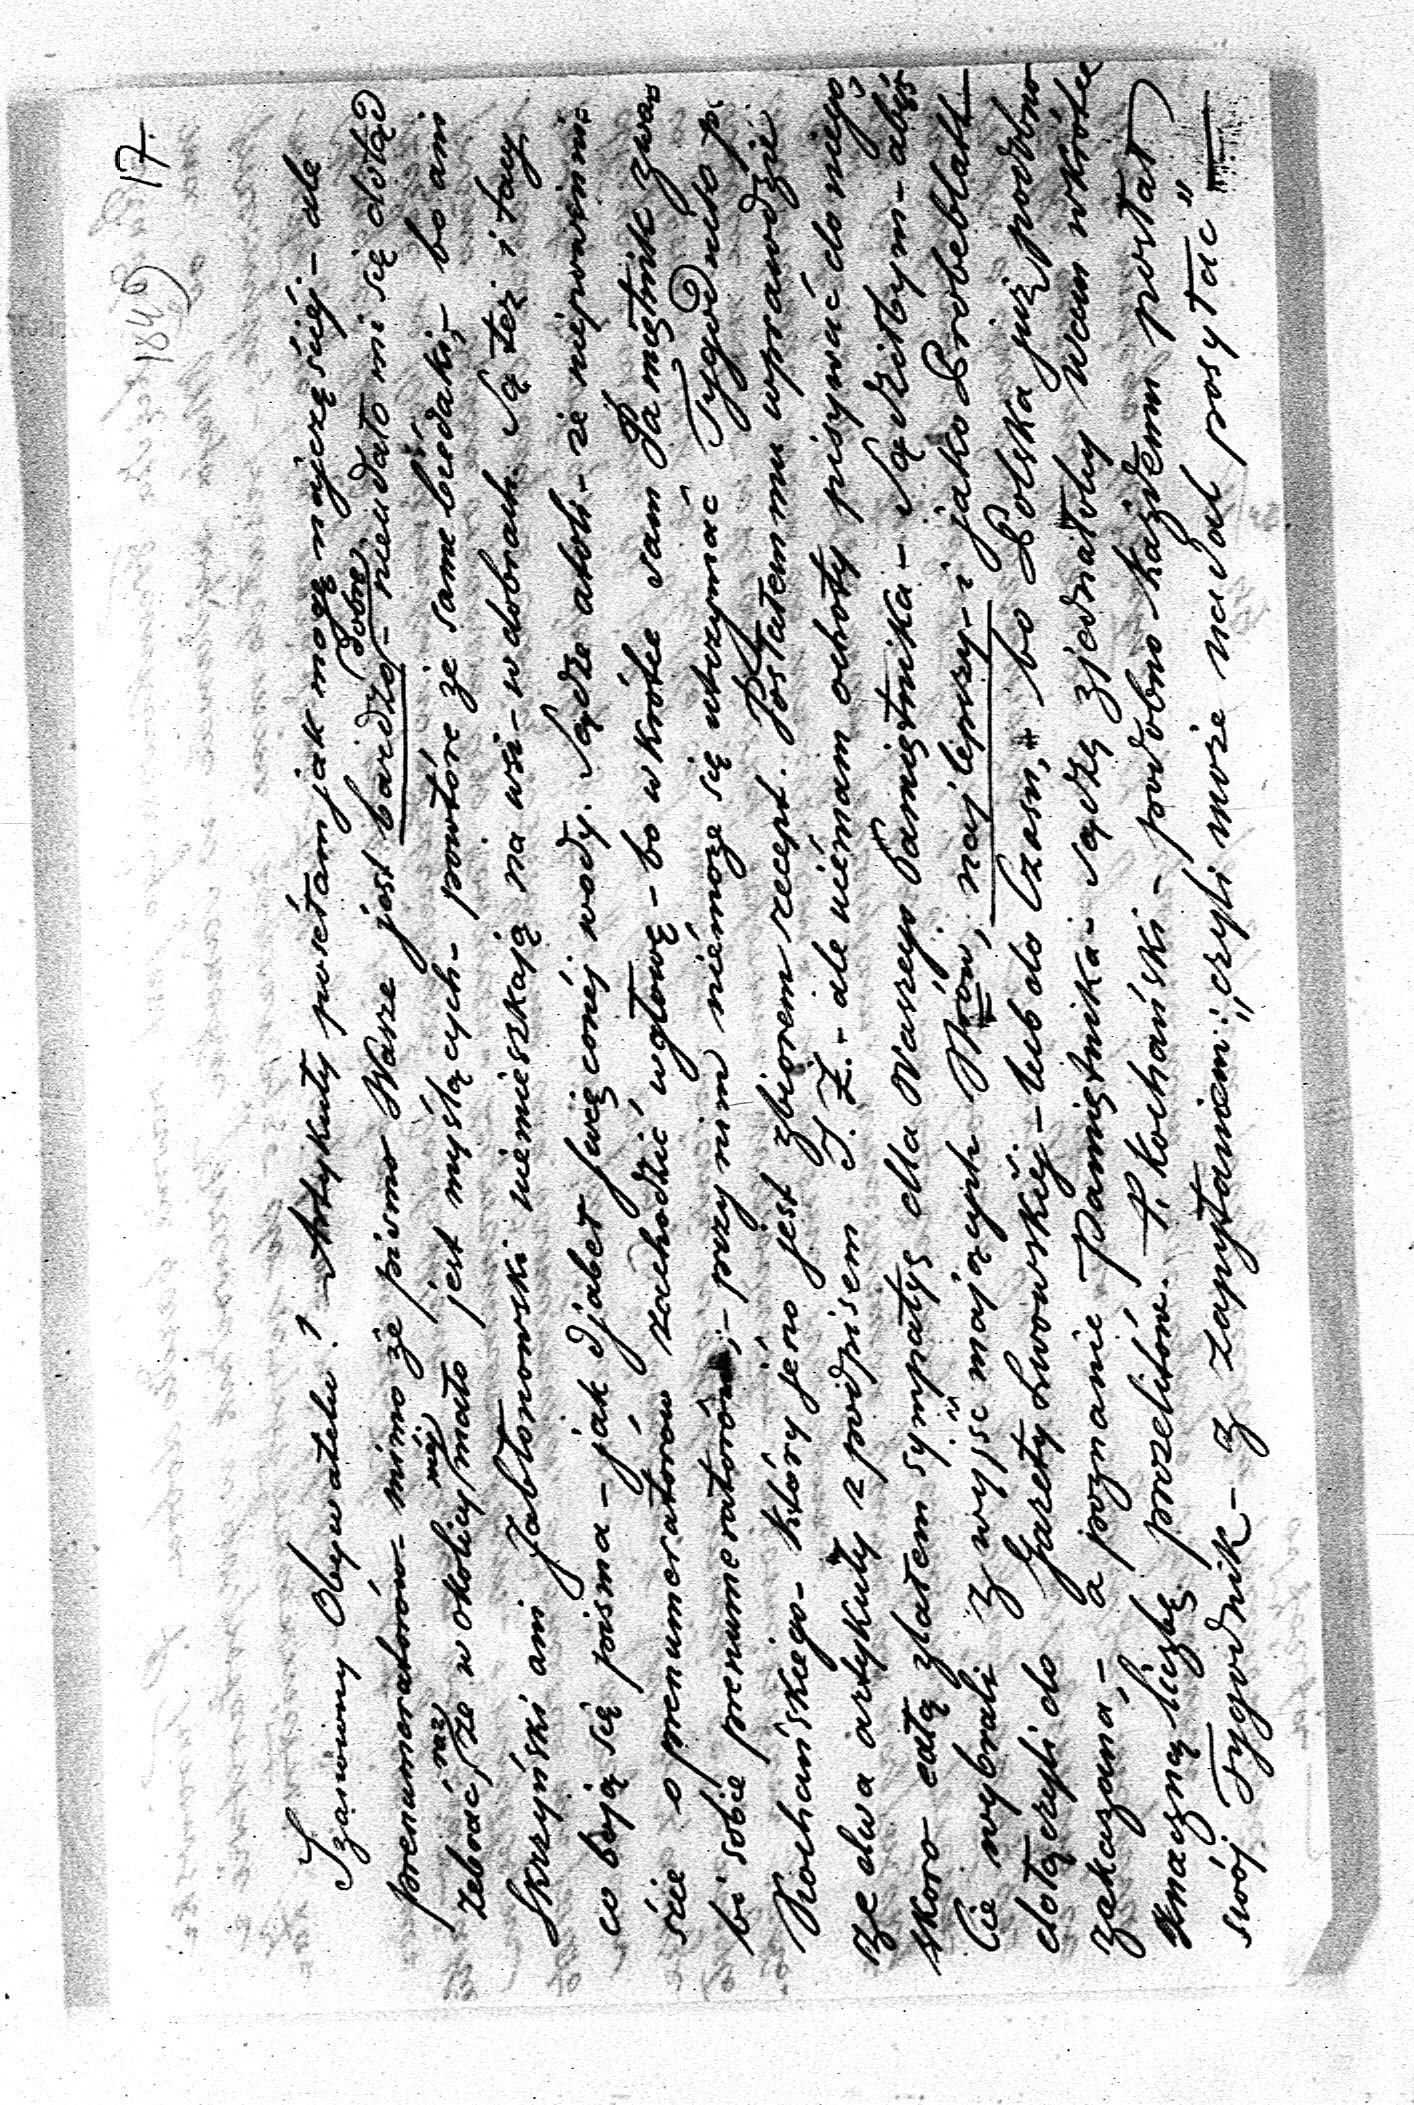 17.
1849
Szanowny Obywatelu! Artykuły posełam jak mogę najczęściéj - ale
prenumeratorów - mimo że pismo Wasze jest bardzo dobre, - nieudało mi się dotąd
zebrać, raz że w okolicy méj mało jest myślących - powtóre że same biedaki, - bo ani
Skrzyński ani Jabłonowski niémieszkają na wsi - w dobrach. Są też i tacy
co boją się pisma - jak djabeł święconéj wody. Sądzę atoli - że niepowinni
ście o prenumeratorów zachodzić w głowę - bo wkrótce sam Pamiętnik zwa
bi sobie prenumeratorów; - przy nim niémoże się utrzymać Tygodnik p.
Kochańskiego - który jeno jest zbiorem recept. Posłałem mu wprawdzie
ze dwa artykuły z podpisem J. Ż. - ale niémam ochoty pisywać do niego
skoro całą zlałem sympatyę dla Waszego Pamiętnika - Sądziłbym - abyś
cie wybrali z wyjsc mających Nrów, najlepszy - i jako Probeblatt
dołączyli do Gazety Lwowskiéj - lub do Czasu, bo Polska już podobno
zakazaną, - a poznanie Pamiętnika - sądzę zjednałoby Wam wkrótce
znaczną liczbę prozelitów. P. Kochański - podobno każdemu posłał
swój Tygodnik - z zapytaniem: „czyli może nadal posyłać" —